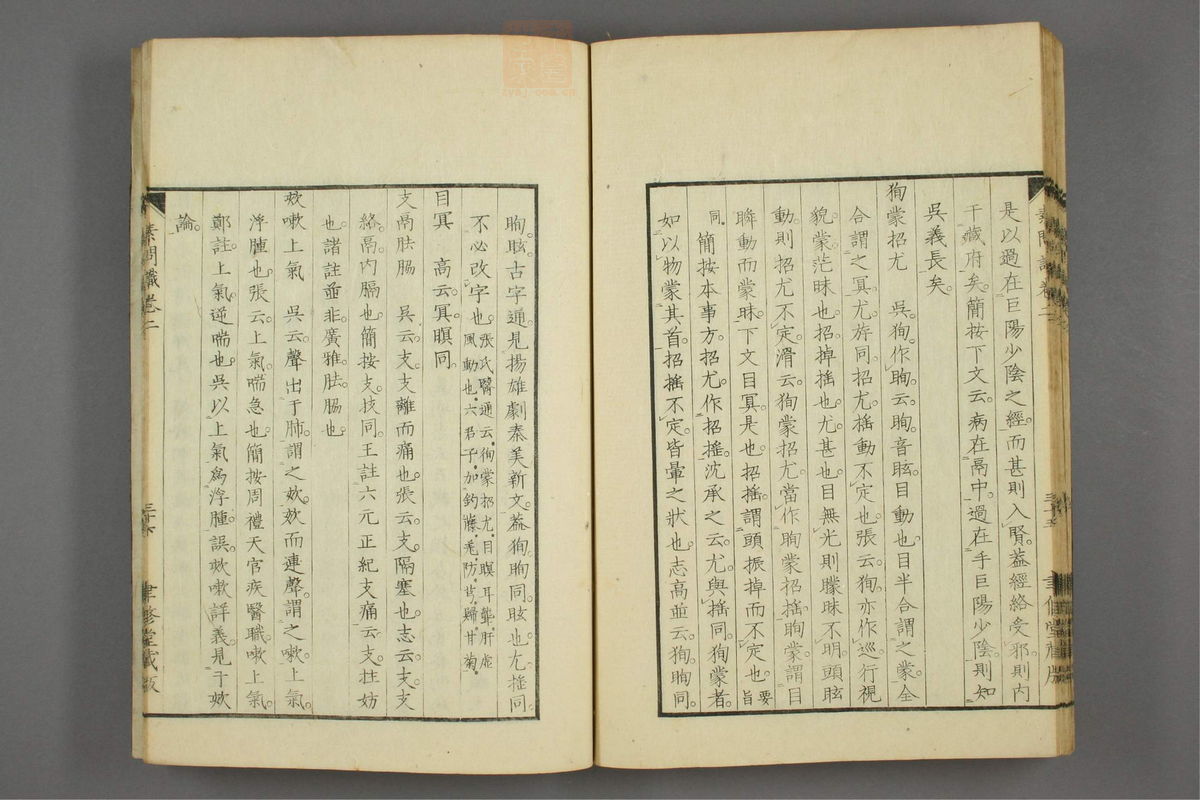 是以過在巨陽少陰之經而甚則入腎葢經絡受邪則内
干藏府矣簡按下文云病在鬲中過在手巨陽少陰則知
吳義長矣
徇蒙招尤　吳徇作眴云眴音眩目動也目半合謂之蒙全
合謂之冥尤旂同招尤搖動不定也張云徇亦作巡行視
貌蒙茫昧也招掉搖也尤甚也目無光則矇昧不明頭眩
動則招尤不定滑云徇蒙招尤當作眴蒙招搖眴蒙謂目
瞬動而蒙昧下文目冥是也招搖謂頭振掉而不定也要旨
同簡按本事方招尤作招搖沈承之云尤與搖同徇蒙者
如以物蒙其首招搖不定皆暈之狀也志高並云徇眴同
眴眩古字通見揚雄劇秦美新文葢徇眴同眩也尤搖同
不必改字也張氏醫通云徇蒙招尤目瞑耳聾肝虛風動也六君子加鈎藤羌防芎歸甘菊
目冥　高云冥瞑同
支鬲胠脇　吳云支支離而痛也張云支隔塞也志云支支
絡鬲内膈也簡按支技同王註六元正紀支痛云支拄妨
也諸註並非廣雅胠脇也
欬嗽上氣　吳云聲出于肺謂之欬欬而連聲謂之嗽上氣
浮腫也張云上氣喘急也簡按周禮天官疾醫職嗽上氣
鄭註上氣逆喘也吳以上氣爲浮腫誤欬嗽詳義見于欬
論
素問識卷二
三十六
聿修堂藏版